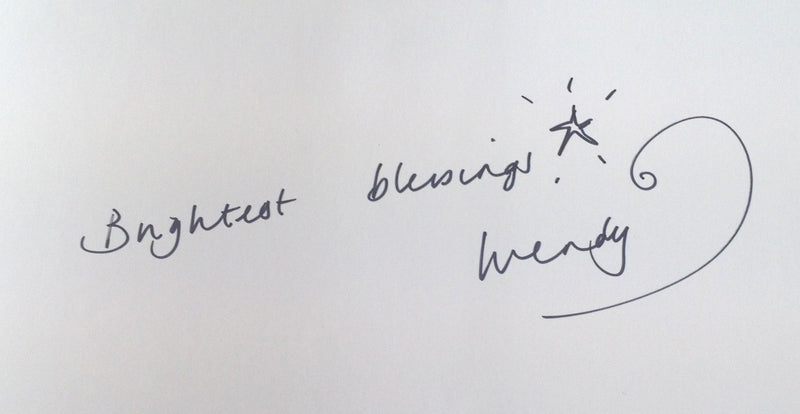 Brightest blessings
Wendy